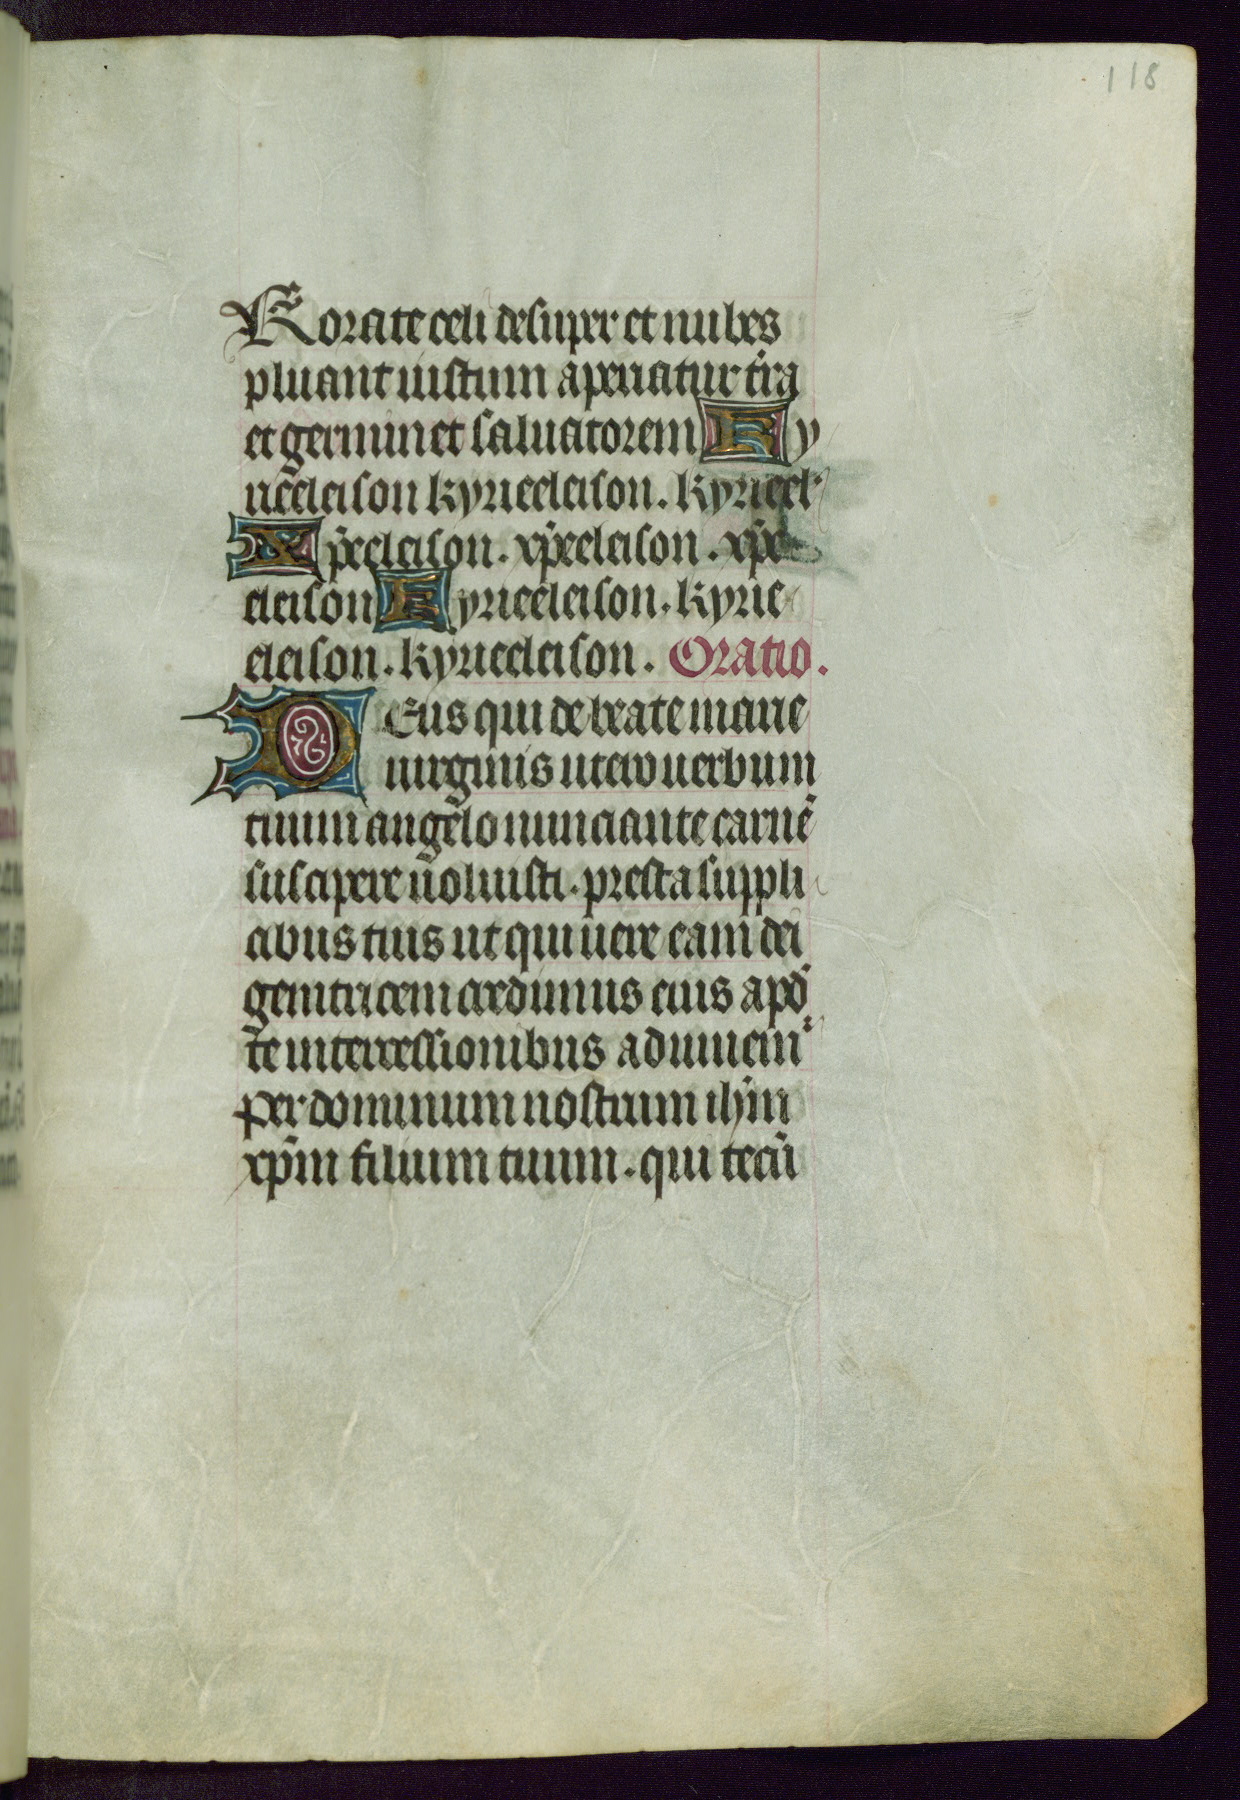 118
Rorate celi desuper et nubes
pluant iustum aperiatur t̄ra
et germinet saluatorem Ky
rieeleison kyrieeleison. kyrieel'
Xp̄eeleison. xp̄eeleison. xp̄e
eleison Kyrieeleison. kyrie
eleison. kyrieeleison. Oratio.
DEus qui de beate marie
uirginis utero uerbum
tuum angelo nunciante carnē
suscipere uoluisti. presta suppli
cibus tuis ut qui uere eam dei
genitricem credimus eius apd̄
te intercessionibus adiuuem'
per dominum nostrum ih̄m
xp̄m filium tuum. qui tecū